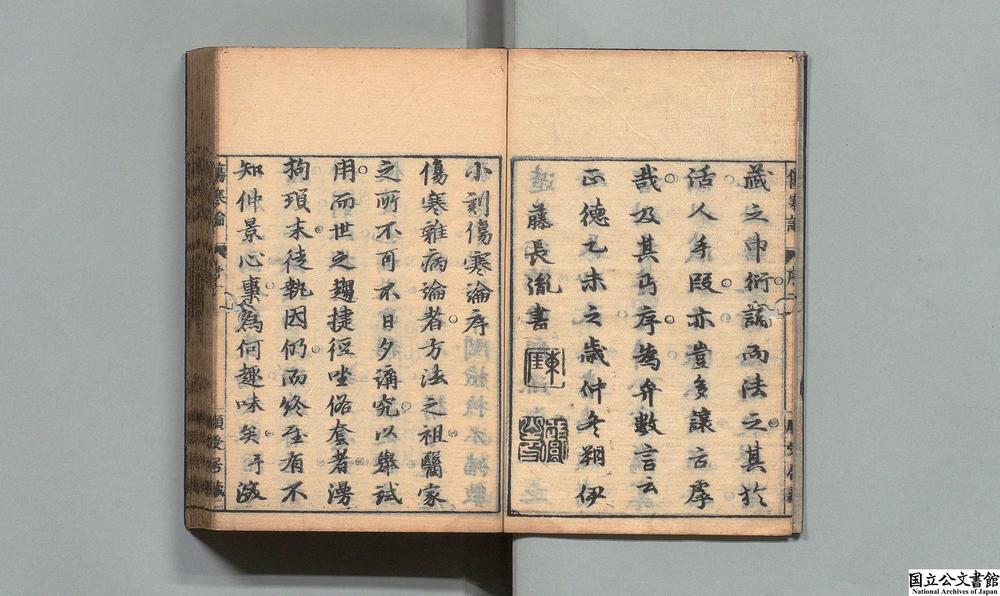 藏之巾衍誦而法之其於
活人手段亦豈多讓古厚
哉及其丐序為弁數言云
正徳乙未之歳仲冬朔伊
藤長胤書
小刻傷寒論序
傷寒雜病論者方法之祖醫家
之所不可不日夕講究以舉試
用而世之趨捷徑坐俗套者漫
拘瑣末徒執因仍而終至有不
知仲景心事為何趣味矣予深
傷寒論
国立公文書館
National Archives of Japan